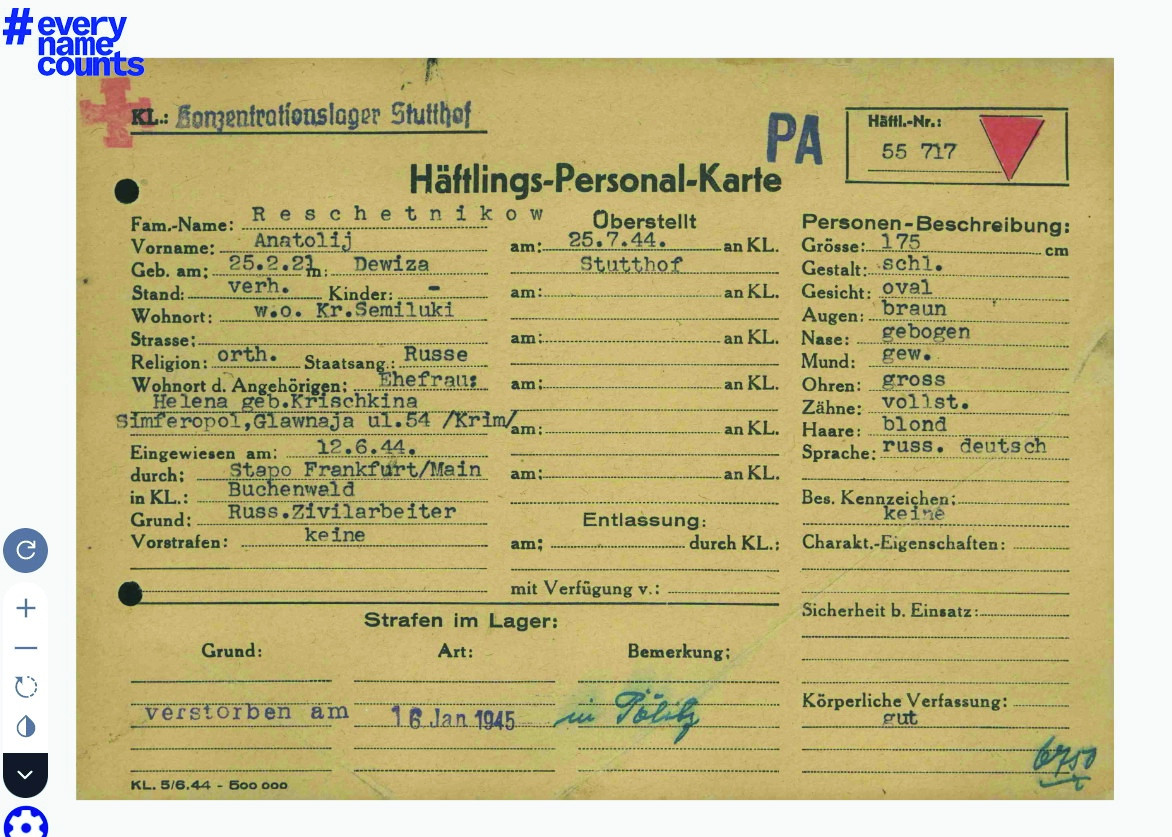 #every
name
counts
KL.: Konzentrationslager Stutthof
PA
Häftl.-Nr.:
55 717
Häftlings-Personal-Karte
Fam.-Name: Reschetnikow
Vorname: Anatolij
Geb. am: 25.2.21 in: Dewiza
Stand: verh. Kinder: -
Wohnort: w.o. Kr.Semiluki
Strasse:
Religion: orth. Staatsang.: Russe
Wohnort d. Angehörigen: Ehefrau:
Helena geb.Krischkina
Simferopol,Glawnaja ul.54 /Krim/
Eingewiesen am: 12.6.44.
durch: Stapo Frankfurt/Main
in KL.: Buchenwald
Grund: Russ.Zivilarbeiter
Vorstrafen: keine
Überstellt
am: 25.7.44. an KL.
Stutthof
am: an KL.
am: an KL.
am: an KL.
am: an KL.
am: an KL.
Entlassung:
am: durch KL.:
mit Verfügung v.:
Personen-Beschreibung:
Grösse: 175 cm
Gestalt: schl.
Gesicht: oval
Augen: braun
Nase: gebogen
Mund: gew.
Ohren: gross
Zähne: vollst.
Haare: blond
Sprache: russ. deutsch
Bes. Kennzeichen:
keine
Charakt.-Eigenschaften:
Sicherheit b. Einsatz:
Körperliche Verfassung:
gut
Strafen im Lager:
Grund: Art: Bemerkung:
verstorben am 16 Jan 1945 in Pölitz
6750
KL. 5/6.44 - 500 000